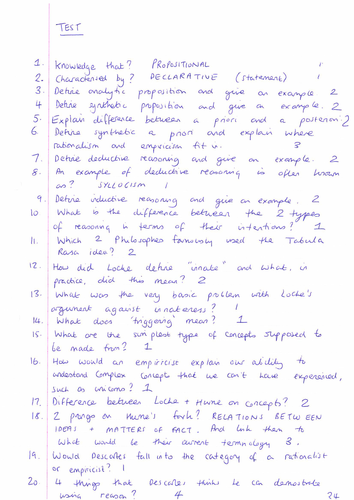 TEST
1. Knowledge that? PROPOSITIONAL 1
2. Characterised by? DECLARATIVE (statement) 1
3. Define analytic proposition and give an example 2
4 Define synthetic proposition and give an example. 2
5. Explain difference between a priori and a posteriori 2
6. Define synthetic a priori and explain where
rationalism and empiricism fit in. 3
7. Define deductive reasoning and give an example. 2
8. An example of deductive reasoning is often known
as? SYLLOGISM 1
9. Define inductive reasoning and give an example. 2
10 What is the difference between the 2 types
of reasoning in terms of their intentions? 1
11. Which 2 Philosophers famously used the Tabula
Rasa idea? 2
12. How did Locke define "innate" and what, in
practice, did this mean? 2
13. What was the very basic problem with Locke's
argument against innateness? 1
14. What does 'triggering' mean? 1
15. What are the simplest type of concepts supposed to
be made from? 1
16. How would an empiricist explain our ability to
understand complex concepts that we can't have experienced,
such as unicorns? 1
17. Difference between Locke + Hume on Concepts? 2
18. 2 prongs on Hume's fork? RELATIONS BETWEEN
IDEAS + MATTERS OF FACT. And link them to
what would be their current terminology 3.
19. Would Descartes fall into the category of a rationalist
or empiricist? 1
20 4 things that Descartes thinks he can demonstrate
using reason? 4 34